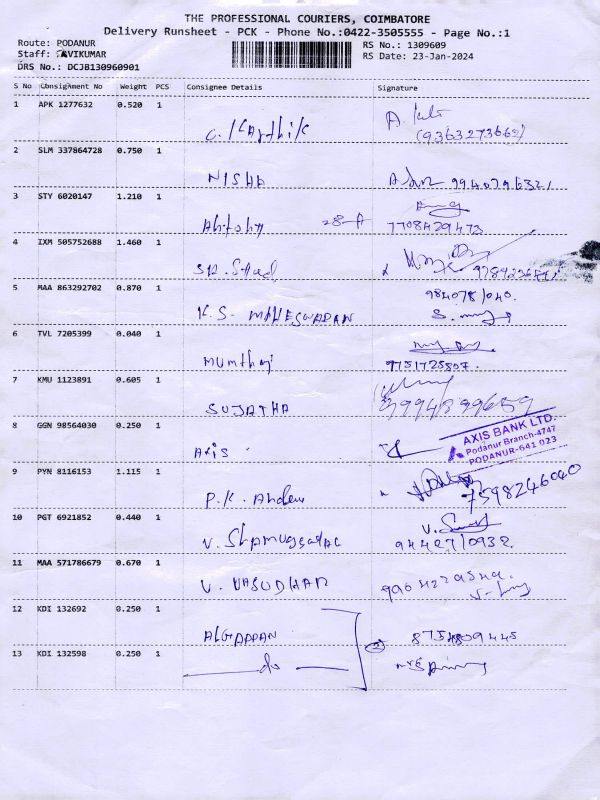 THE PROFESSIONAL COURIERS, COIMBATORE
Delivery Runsheet - PCK - Phone No.:0422-3505555 - Page No.:1
Route: PODANUR RS No.: 1309609
Staff: AVIKUMAR RS Date: 23-Jan-2024
DRS No.: DCJB130960901
S No Consignment No Weight PCS Consignee Details Signature
1 APK 1277632 0.520 1
C. Karthik
(9363273662)
2 SLM 337864728 0.750 1
NISHA
3 STY 6020147 1.210 1
28-A 7708429473
4 IXM 505752688 1.460 1
5 MAA 863292702 0.870 1
9840781040.
K.S. MAHESWARAN
6 TVL 7205399 0.040 1
Mumthaj 9751725807.
7 KMU 1123891 0.605 1
SUJATHA
8 GGN 98564030 0.250 1
AXIS BANK LTD.
Podanur Branch-4747
PODANUR-641 023
Axis
9 PYN 8116153 1.115 1
P.K. 7598246040
10 PGT 6921852 0.440 1
V. 9442710932
11 MAA 571786679 0.670 1
V. VASUDHAN
12 KDI 132692 0.250 1
ALGAPPAN 2 8754809445
13 KDI 132598 0.250 1
do